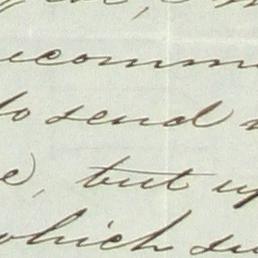 recomm
to send
e, but up
which su